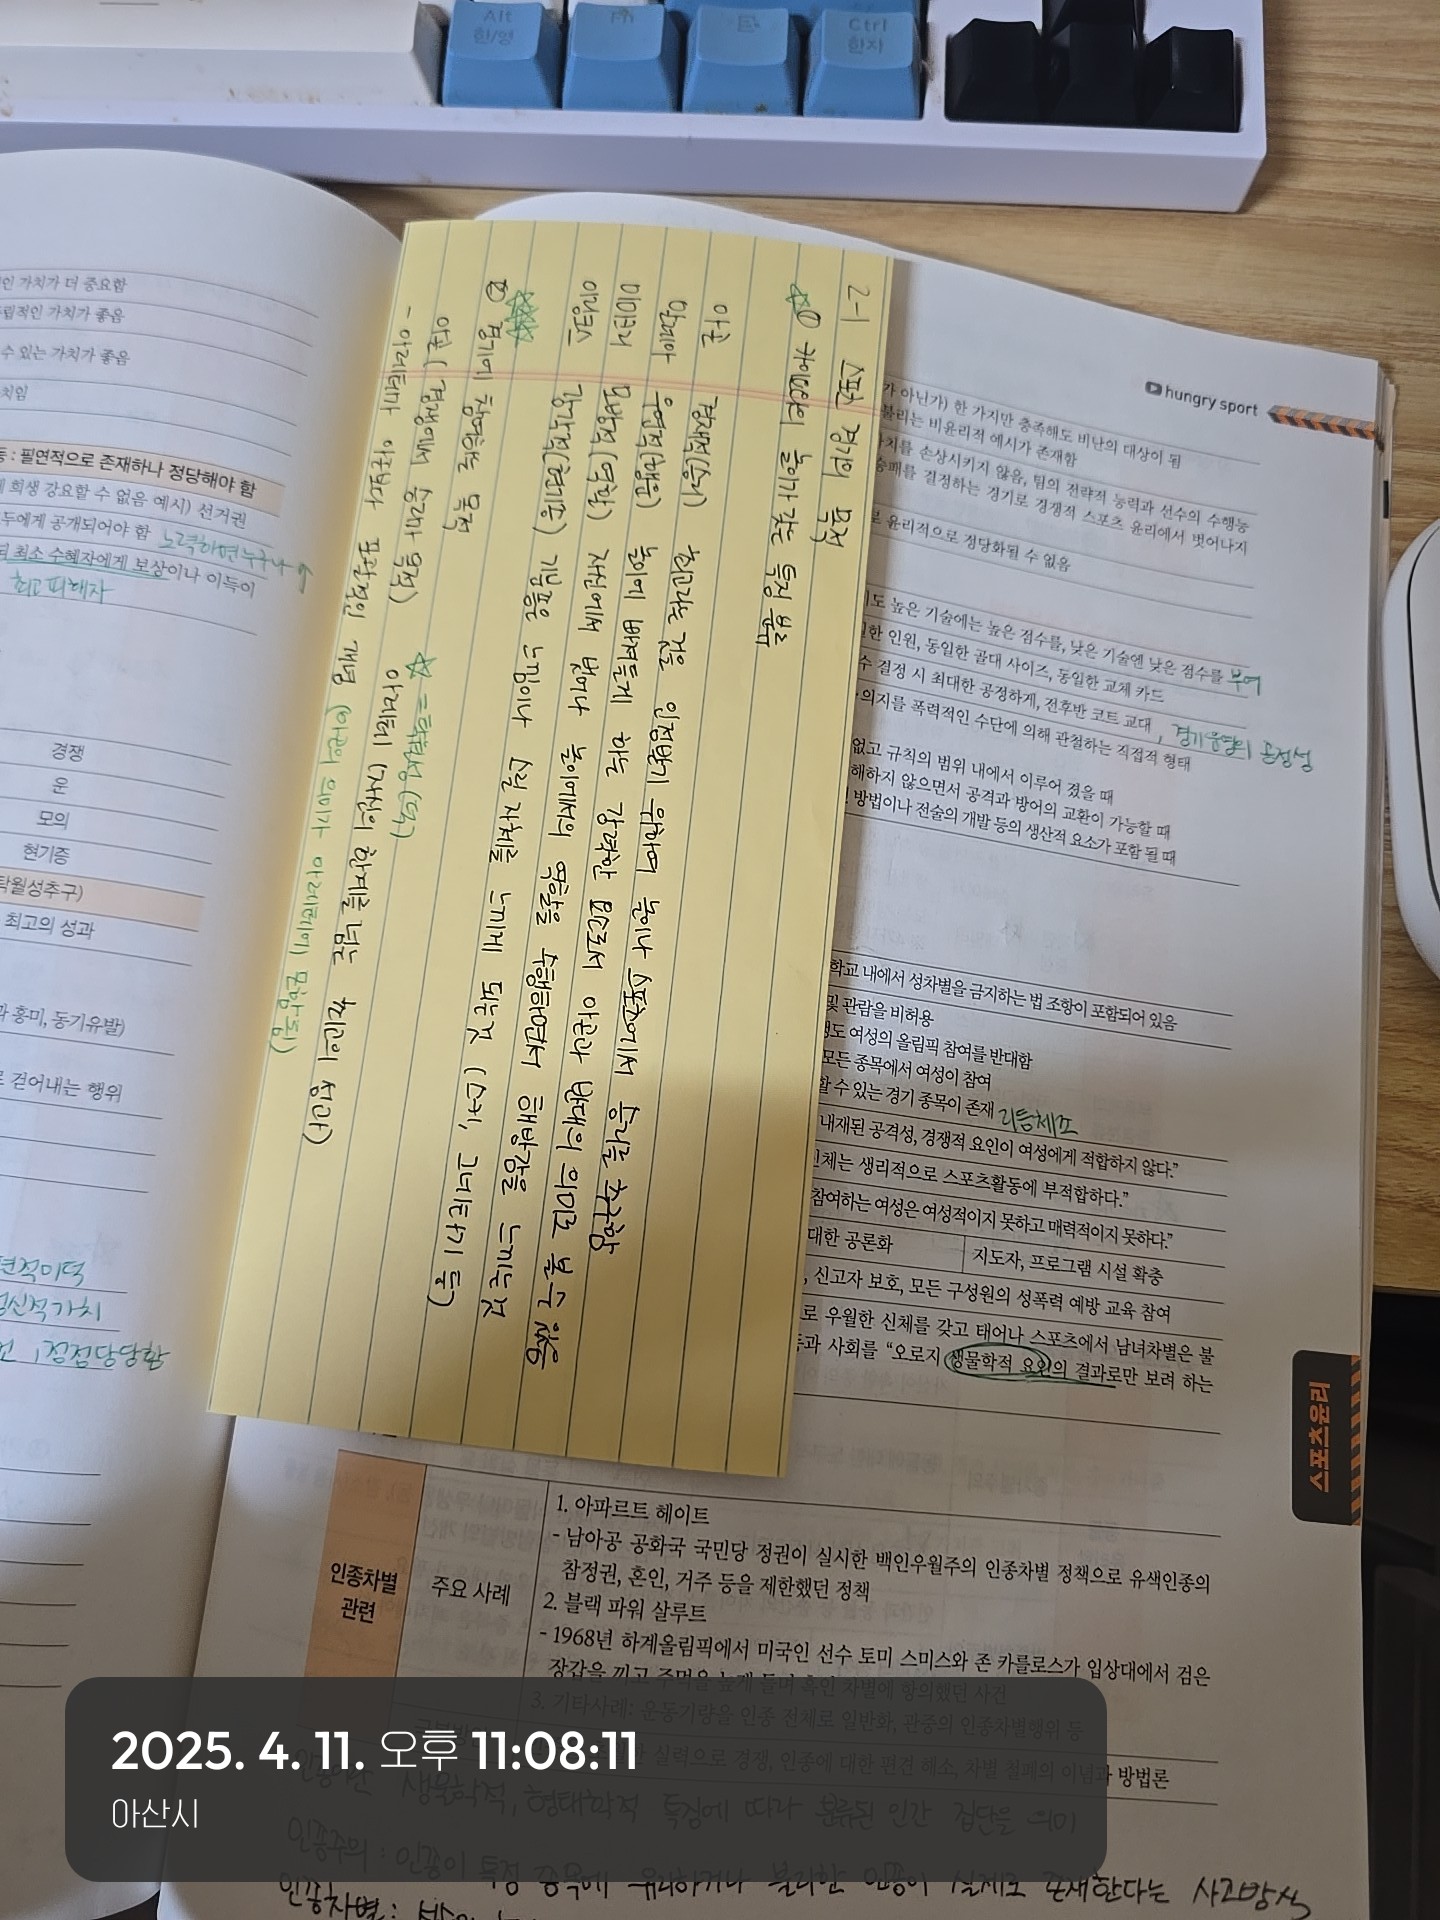 Alt
한/영
Ctrl
한자
인 가치가 더 중요함
립적인 가치가 좋음
수 있는 가치가 좋음
치임
등 : 필연적으로 존재하나 정당해야 함
희생 강요할 수 없음 예시) 선거권
두에게 공개되어야 함 노력하면 누구나
최소 수혜자에게 보상이나 이득이
최고 피해자
경쟁
운
모의
현기증
탁월성추구)
최고의 성과
과 흥미, 동기유발)
로 걷어내는 행위
정신적 가치
2-1 스포츠 경기의 목적
☆① 카이요와의 놀이가 갖는 특징 분류
아곤 경쟁적(승리) 최고라는 것을 인정받기 위하여 놀이나 스포츠에서 승리를 추구함
알레아 우연적(행운) 놀이에 빠져들게 하는 강력한 요소로써 아곤과 반대의 의미로 볼 수 있음
미미크리 모방적(역할) 자신에게서 벗어나 놀이에서의 역할을 수행하면서 해방감을 느끼는 것
일링크스 감각적(현기증) 기분좋은 느낌이나 스릴 자체를 느끼게 되는 것
② 경기에 참여하는 목적
아곤 (경쟁에서 승리가 목적) 아레테 (자신의 한계를 넘는 최고의 성과)
☆ = 탁월성(덕)
- 아레테가 아곤보다 포괄적인 개념 (아곤의 의미가 아레테에 포함됨)
hungry sport
가 아닌가) 한 가지만 충족해도 비난의 대상이 됨
불리는 비윤리적 예시가 존재함
가치를 손상시키지 않음, 팀의 전략적 능력과 선수의 수행능
승패를 결정하는 경기로 경쟁적 스포츠 윤리에서 벗어나지
로 윤리적으로 정당화될 수 없음
도 높은 기술에는 높은 점수를, 낮은 기술엔 낮은 점수를 부여
일한 인원, 동일한 골대 사이즈, 동일한 교체 카드
수 결정 시 최대한 공정하게, 전후반 코트 교대, 경기운영의 공정성
의지를 폭력적인 수단에 의해 관철하는 직접적 형태
없고 규칙의 범위 내에서 이루어 졌을 때
해하지 않으면서 공격과 방어의 교환이 가능할 때
방법이나 전술의 개발 등의 생산적 요소가 포함 될 때
학교 내에서 성차별을 금지하는 법 조항이 포함되어 있음
및 관람을 비허용
도 여성의 올림픽 참여를 반대함
모든 종목에서 여성이 참여
할 수 있는 경기 종목이 존재 리듬체조
내재된 공격성, 경쟁적 요인이 여성에게 적합하지 않다."
신체는 생리적으로 스포츠활동에 부적합하다."
참여하는 여성은 여성적이지 못하고 매력적이지 못하다."
대한 공론화 지도자, 프로그램 시설 확충
, 신고자 보호, 모든 구성원의 성폭력 예방 교육 참여
로 우월한 신체를 갖고 태어나 스포츠에서 남녀차별은 불
등과 사회를 "오로지 생물학적 요인의 결과로만 보려 하는
스포츠윤리
인종차별
관련
주요 사례
1. 아파르트 헤이트
- 남아공 공화국 국민당 정권이 실시한 백인우월주의 인종차별 정책으로 유색인종의
참정권, 혼인, 거주 등을 제한했던 정책
2. 블랙 파워 살루트
- 1968년 하계올림픽에서 미국인 선수 토미 스미스와 존 카를로스가 입상대에서 검은
장갑을 끼고 주먹을 높게 들며 흑인 차별에 항의했던 사건
3. 기타사례: 운동기량을 인종 전체로 일반화, 관중의 인종차별행위 등
실력으로 경쟁, 인종에 대한 편견 해소, 차별 철폐의 이념과 방법론
인종이란 생물학적, 형태학적 특징에 따라 분류된 인간 집단을 의미
인종주의 : 인종이 특정 종목에 유리하거나 불리한 인종이 실제로 존재한다는 사고방식
인종차별 :
2025. 4. 11. 오후 11:08:11
아산시